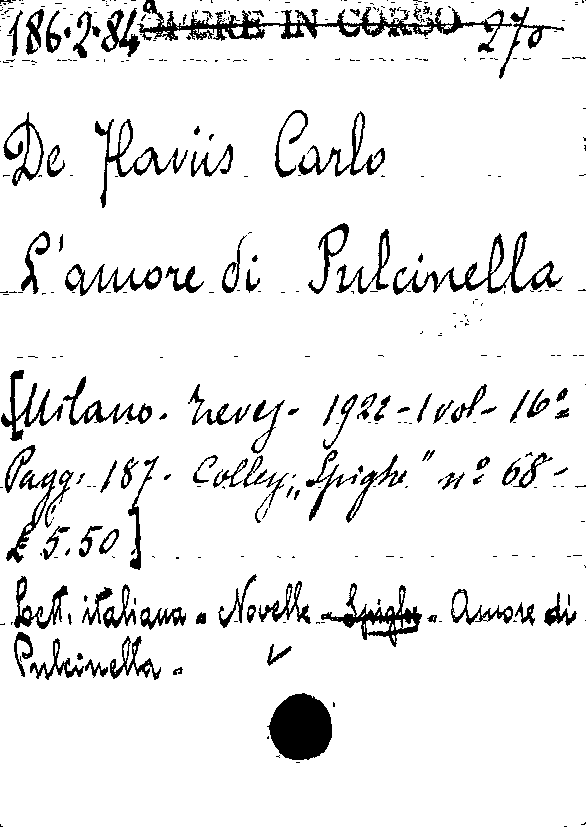 186.2.84ª OPERE IN CORSO 270
De Flaviis Carlo
L'amore di Pulcinella
[Milano. Treves - 1922 - 1 vol - 16º
Pagg. 187. Collez. „Spighe" nº 68 -
£ 5.50]
Lett. italiana - Novelle - Spighe - Amore di
Pulcinella -